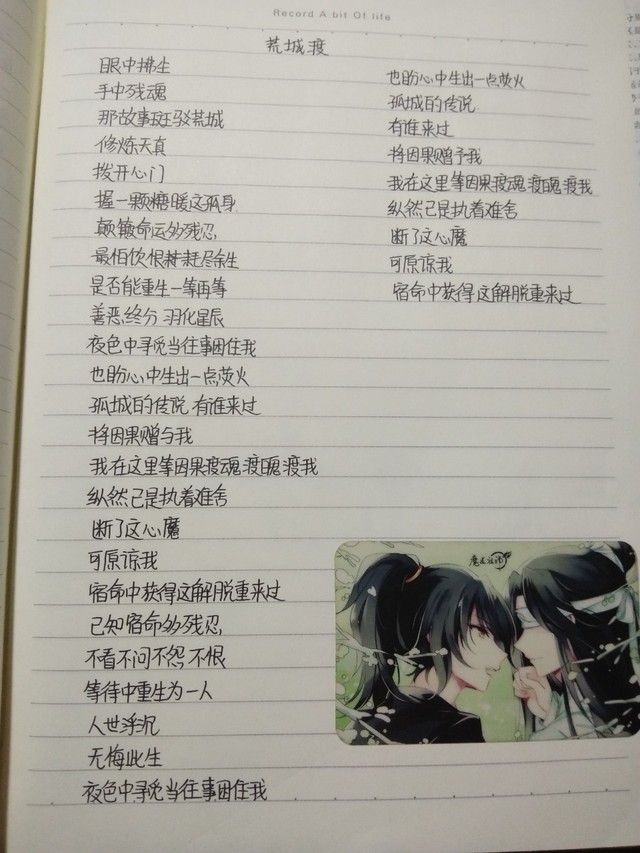 Record A bit Of life
荒城渡
眼中拂尘
手中残魂
那故事斑驳荒城
修炼天真
拨开心门
握一颗糖暖这孤身
颠簸命运的残忍
最怕饮恨耗尽余生
是否能重生一等再等
善恶终分 羽化星辰
夜色中寻觅当往事困住我
也盼心中生出一点荧火
孤城的传说 有谁来过
将因果赠与我
我在这里等因果渡魂渡魄渡我
纵然已是执着难舍
断了这心魔
可原谅我
宿命中获得这解脱重来过
已知宿命的残忍
不看不问不怨不恨
等待中重生为一人
人世浮沉
无悔此生
夜色中寻觅当往事困住我
也盼心中生出一点荧火
孤城的传说
有谁来过
将因果赠予我
我在这里等因果渡魂渡魄渡我
纵然已是执着难舍
断了这心魔
可原谅我
宿命中获得这解脱重来过
魔道祖师